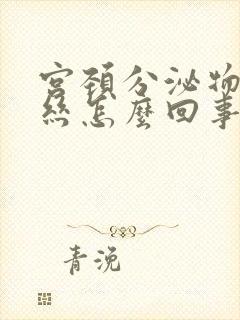 宮頸分泌物
絲怎麼回事
青浼